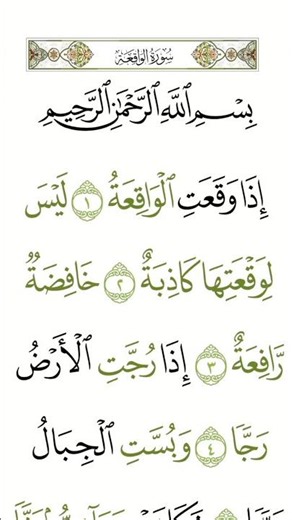 سورة الواقعة
بِسْمِ ٱللَّهِ ٱلرَّحْمَٰنِ ٱلرَّحِيمِ
إِذَا وَقَعَتِ ٱلْوَاقِعَةُ ١ لَيْسَ
لِوَقْعَتِهَا كَاذِبَةٌ ٢ خَافِضَةٌ
رَّافِعَةٌ ٣ إِذَا رُجَّتِ ٱلْأَرْضُ
رَجًّا ٤ وَبُسَّتِ ٱلْجِبَالُ